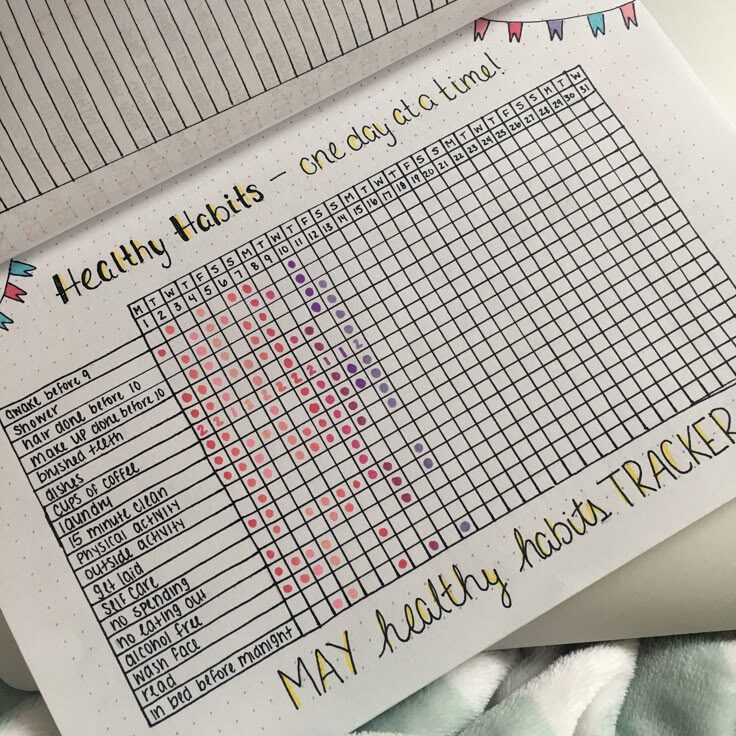 Healthy Habits - one day at a time!
M T W T F S S M T W T F S S M T W T F S S M T W T F S S M T W
1 2 3 4 5 6 7 8 9 10 11 12 13 14 15 16 17 18 19 20 21 22 23 24 25 26 27 28 29 30 31
awake before 9
shower
hair done before 10
make up done before 10
brushed teeth
dishes
cups of coffee
laundry
15 minute clean
physical activity
outside activity
get laid
self care
no spending
no eating out
alcohol free
wash face
read
in bed before midnight
MAY healthy habits TRACKER